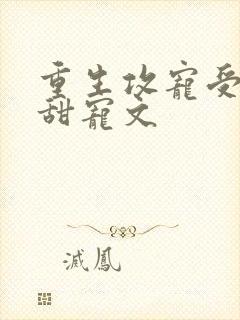 重生攻寵受
甜寵文
滅鳳